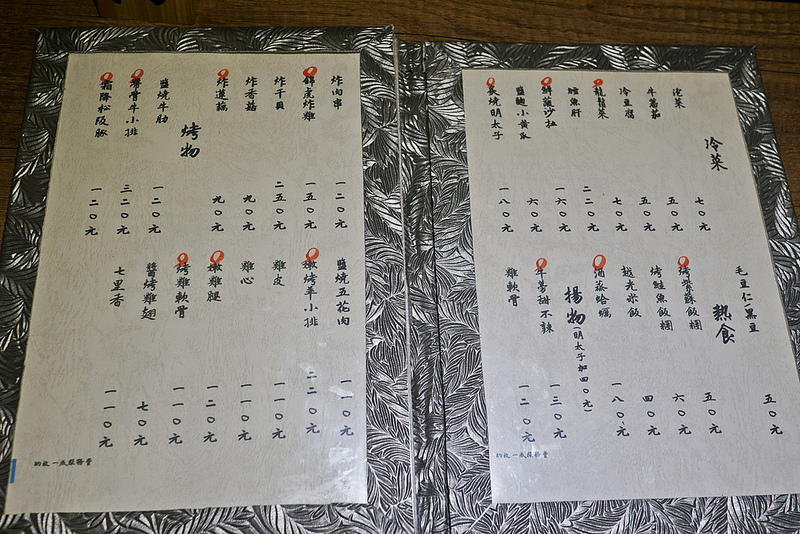 冷菜
泡菜 七〇元
牛蕃茄 五〇元
冷豆腐 五〇元
龍鬚菜 七〇元
鱈魚肝 二二〇元
鮮蔬沙拉 一六〇元
鹽麴小黃瓜 六〇元
炙燒明太子 一八〇元
毛豆仁/黑豆 五〇元
熱食
烤紫蘇飯糰 五〇元
烤鮭魚飯糰 六〇元
越光米飯 四〇元
酒蒸蛤蠣 一八〇元
揚物(明太子加四〇元)
牛蒡甜不辣 一三〇元
雞軟骨 一二〇元
酌收一成服務費
炸肉串 一二〇元
虎炸雞 一五〇元
炸干貝 二五〇元
炸香菇 九〇元
炸蓮藕 九〇元
烤物
鹽燒牛肋 一二〇元
帶骨牛小排 三二〇元
霜降松阪豚 一二〇元
鹽燒五花肉 一一〇元
嫩烤羊小排 二二〇元
雞皮 一一〇元
雞心 一一〇元
嫩雞腿 一二〇元
烤雞軟骨 一一〇元
醬烤雞翅 七〇元
七里香 一一〇元
酌收一成服務費